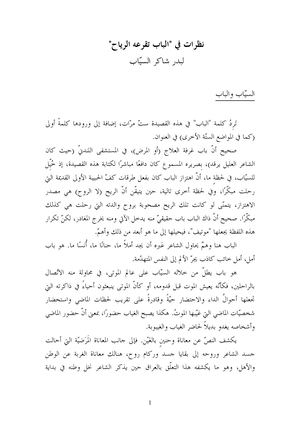 نظرات في "الباب تقرعه الرياح"
لبدر شاكر السيّاب
السيّاب والباب
تردُ كلمة "الباب" في هذه القصيدة ستّ مرّات، إضافة إلى ورودها كلمةً أولى
(كما في المواضع الستّة الأخرى) في العنوان.
صحيح أنّ باب غرفة العلاج (أو المرض)، في المستشفى اللندنيّ (حيث كان
الشاعر العليل يرقد)، بصريره المسموع كان دافعًا مباشرًا لكتابة هذه القصيدة؛ إذ خُيّل
للسيّاب، في لحظةٍ ما، أنّ اهتزاز الباب كان بفعل طرقات كفّ الحبيبة الأولى القديمة التي
رحلت مبكّرًا، وفي لحظة أخرى تالية، حين يتيقّن أنّ الريح (لا الروح) هي مصدر
الاهتزاز، يتمنّى لو كانت تلك الريح مصحوبة بروح والدته التي رحلت هي كذلك
مبكّرًا. صحيح أنّ ذاك الباب باب حقيقيّ منه يدخل الآتي ومنه يخرج المغادر، لكنّ تكرار
هذه اللفظة يجعلها "موتيف"، فيحيلها إلى ما هو أبعد من ذلك وأهمّ.
الباب هنا وهمٌ يحاول الشاعر عبره أن يجد أملاً ما، حنانًا ما، أُنسًا ما. هو باب
أمل، أمل خائب كاذب يجرّ الألم إلى النفس المتهدّمة.
هو باب يطلّ من خلاله السيّاب على عالم الموتى، في محاولة منه الاتّصال
بالراحلين، فكأنّه يعيش الموت قبل قدومه، أو كأنّ الموتى ينبعثون أحياءً في ذاكرته التي
تجعلها أحوالُ الداء والاحتضار حيّةً وقادرةً على تقريب لحظات الماضي واستحضار
شخصيّات الماضي التي غيّبها الموتُ. هكذا يصبح الغياب حضورًا، بمعنى أنّ حضور الماضي
وأشخاصه يغدو بديلاً لحاضر الغياب والغيبوبة.
يكشف النصّ عن معاناة وحنينٍ بالغَيْن. فإلى جانب المعاناة المَرَضيّة التي أحالت
جسد الشاعر وروحه إلى بقايا جسد وركام روح، هنالك معاناة الغربة عن الوطن
والأهل، وهو ما يكشفه هذا التعلّق بالعراق حين يذكر الشاعر نخل وطنه في بداية
1